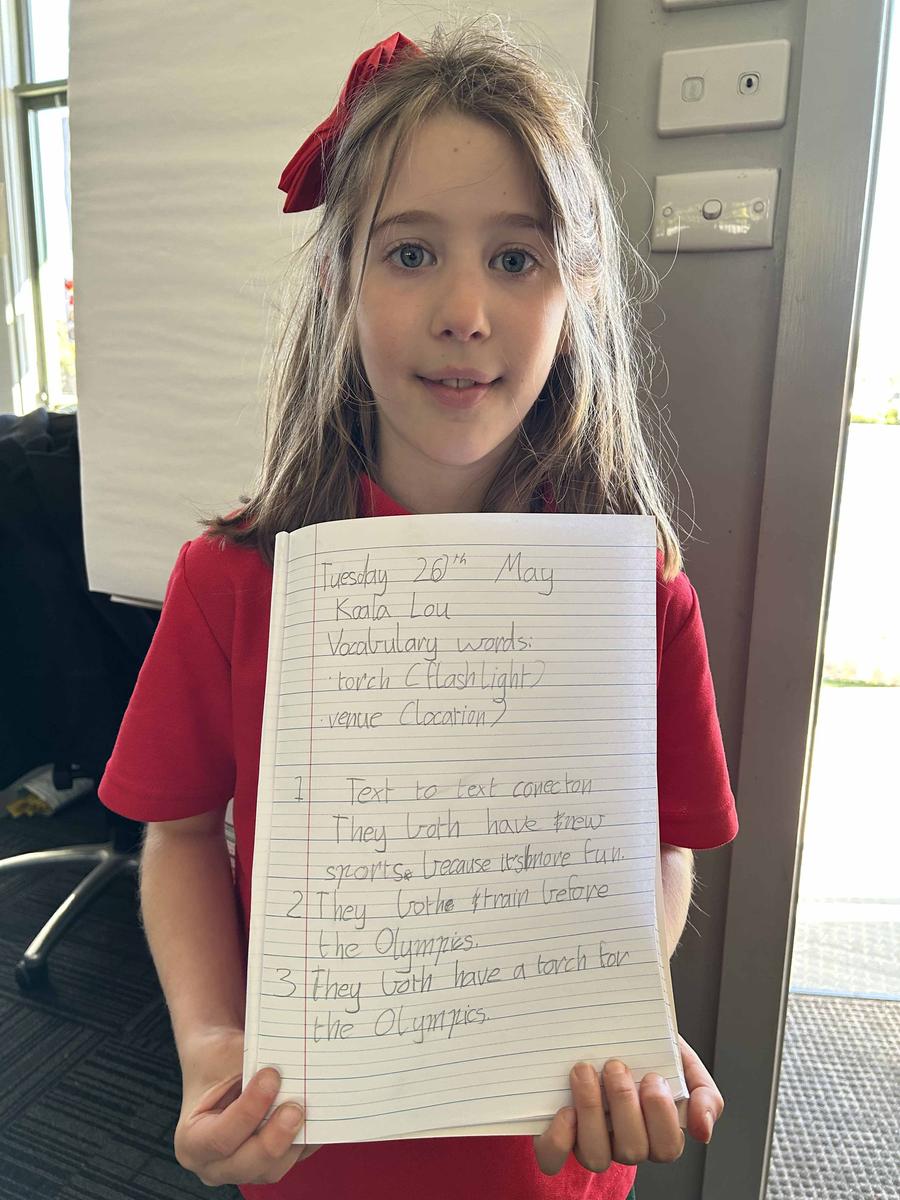 Tuesday 26th May
Koala Lou
Vocabulary words:
· torch (flashlight)
· venue (location)
1 Text to text conecton
They both have new
sports. because it's more fun.
2 They both train before
the Olympics.
3 They both have a torch for
the Olympics.